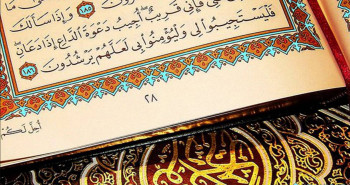 ١٨٥ وَإِذَا سَأَلَكَ
فَإِنِّى قَرِيبٌ أُجِيبُ دَعْوَةَ الدَّاعِ إِذَا دَعَانِ
فَلْيَسْتَجِيبُوا لِى وَلْيُؤْمِنُوا بِى لَعَلَّهُمْ يَرْشُدُونَ ١٨٦
٢٨
أُحِلَّ لَكُمْ